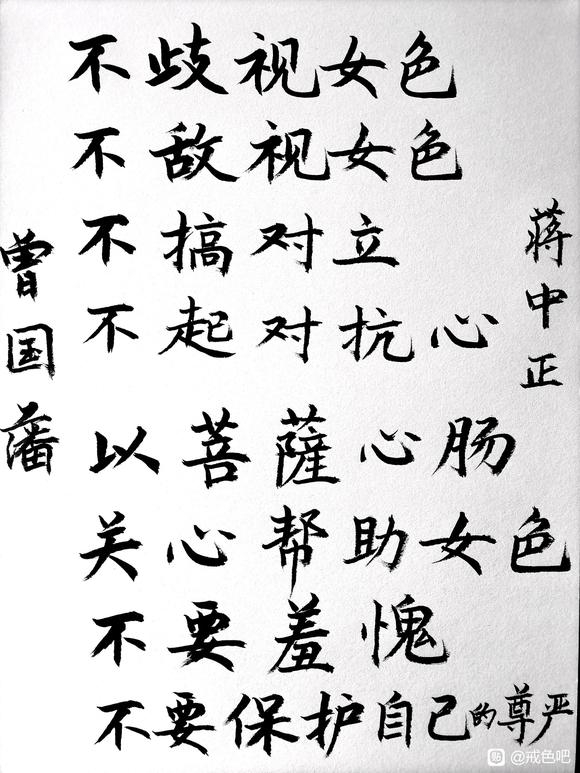 不歧视女色
不敌视女色
不搞对立
不起对抗心
以菩薩心肠
关心帮助女色
不要羞愧
不要保护自己的尊严
蒋中正
曾国藩
贴 @戒色吧